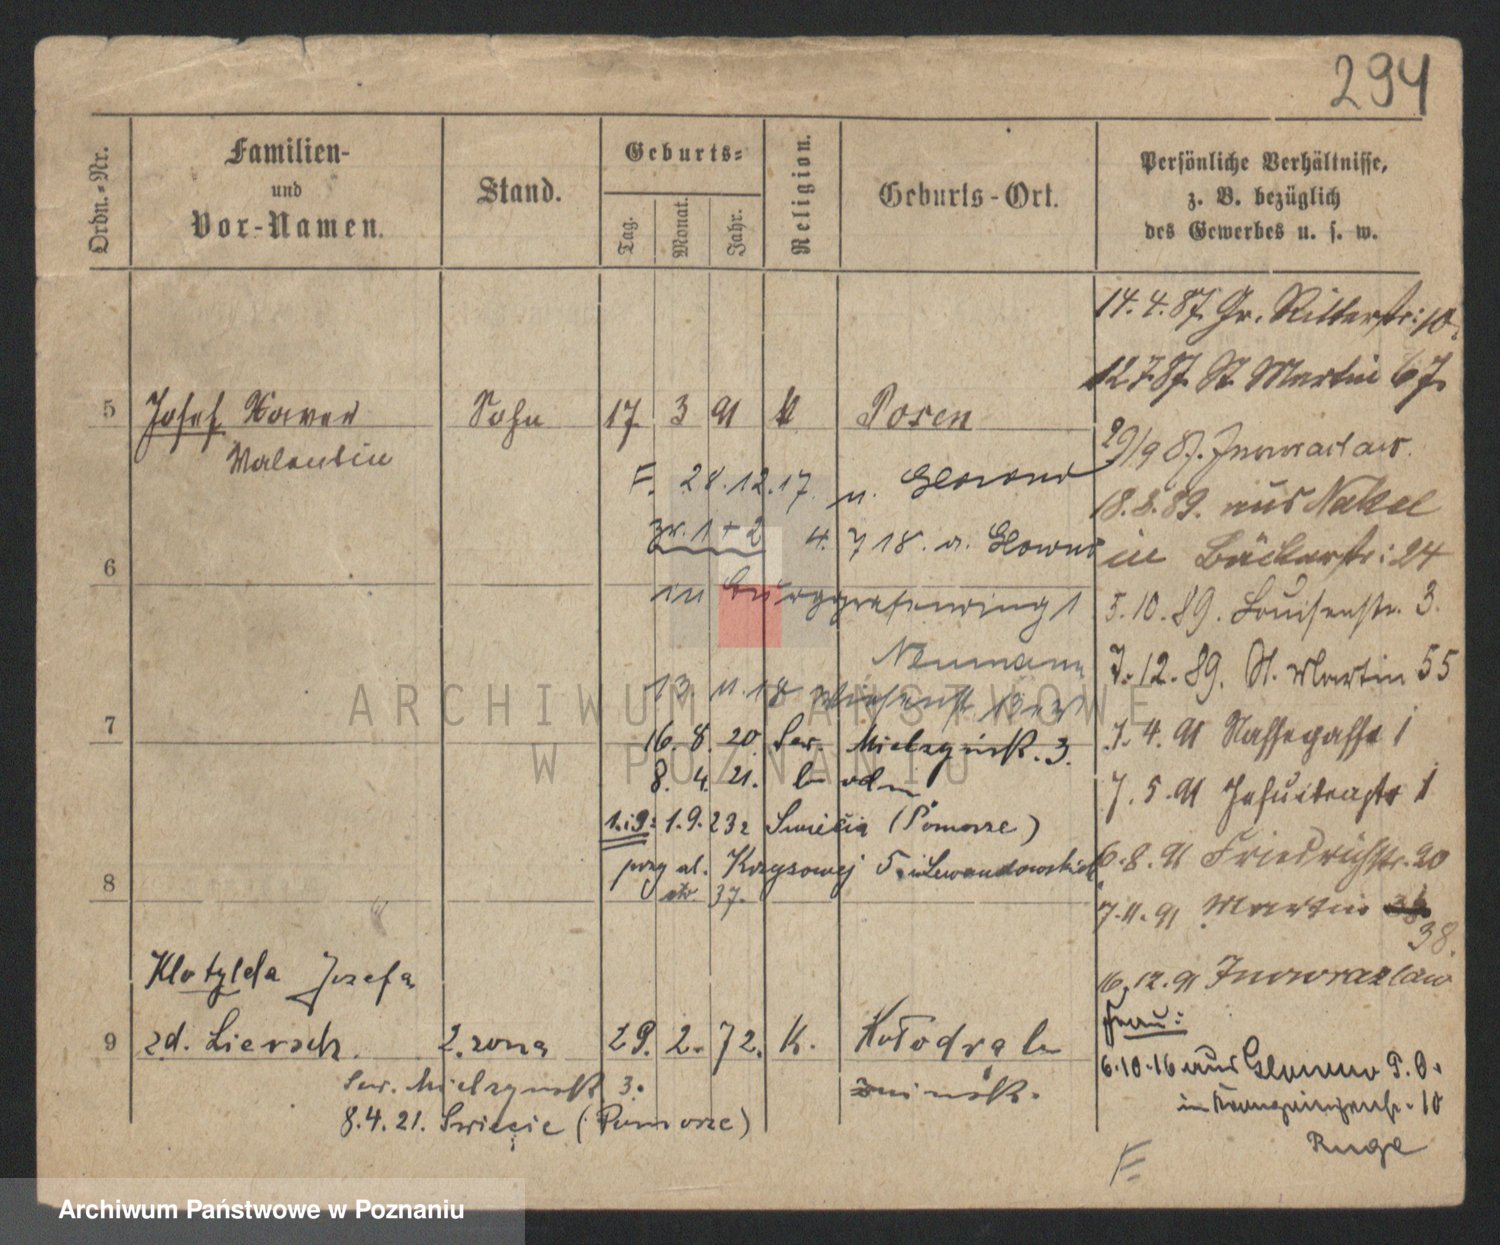 294
Ordn.-Nr.
Familien-
und
Vor-Namen.
Stand.
Geburts-
Tag.
Monat.
Jahr.
Religion.
Geburts-Ort.
Persönliche Verhältnisse,
z. B. bezüglich
des Gewerbes u. s. w.
14.4.87. Gr. Ritterstr: 10.
12.7.87. St Martin 67.
5 Josef Xaver Sohn 17. 3 91 k Posen
Valentin
29/9 87. Inowraclaw.
F. 28.12.17. n. Glowno
18.8.89. aus Nakel
zr. 1 + 2 4. 7 18. a. Glowno
in Bäckerstr: 24
6
in Burggrafenring 1
5.10.89. Louisenstr. 3.
Neumann
7.12.89. St. Martin 55
13 11.18
7
16. 8. 20. Sew. Mielzyńsk. 3.
1.4.91 Nassegasse 1
8. 4. 21.
7.5.91 Jesuitenstr 1
1.i 9: 1.9.232 Swiecia (Pomorze)
przy ul. Krzysowej 5 Lewandowskich
6.8.91 Friedrichstr. 20
8
37.
7.11.91 Martin 38.
Klotylda Józefa
16.12.91 Inowrazlaw
Frau:
9 zd. Liersch. 2. żona 29. 2. 72. K. Kołodra
6.10.16 aus Glowno P. O.
Sew. Mielzynsk 3.
żninsk.
in 10
8.4.21. Swiecie (Pomorze)
Ruge
F
ARCHIWUM PAŃSTWOWE
W POZNANIU
Archiwum Państwowe w Poznaniu